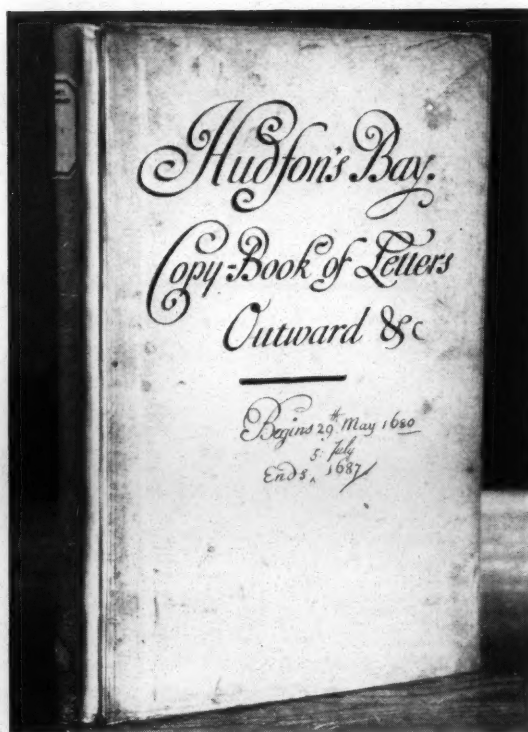 Hudſon's Bay.
Copy-Book of Letters
Outward &c
Begins 29th May 1680
5 July
Ends ‸ 1687